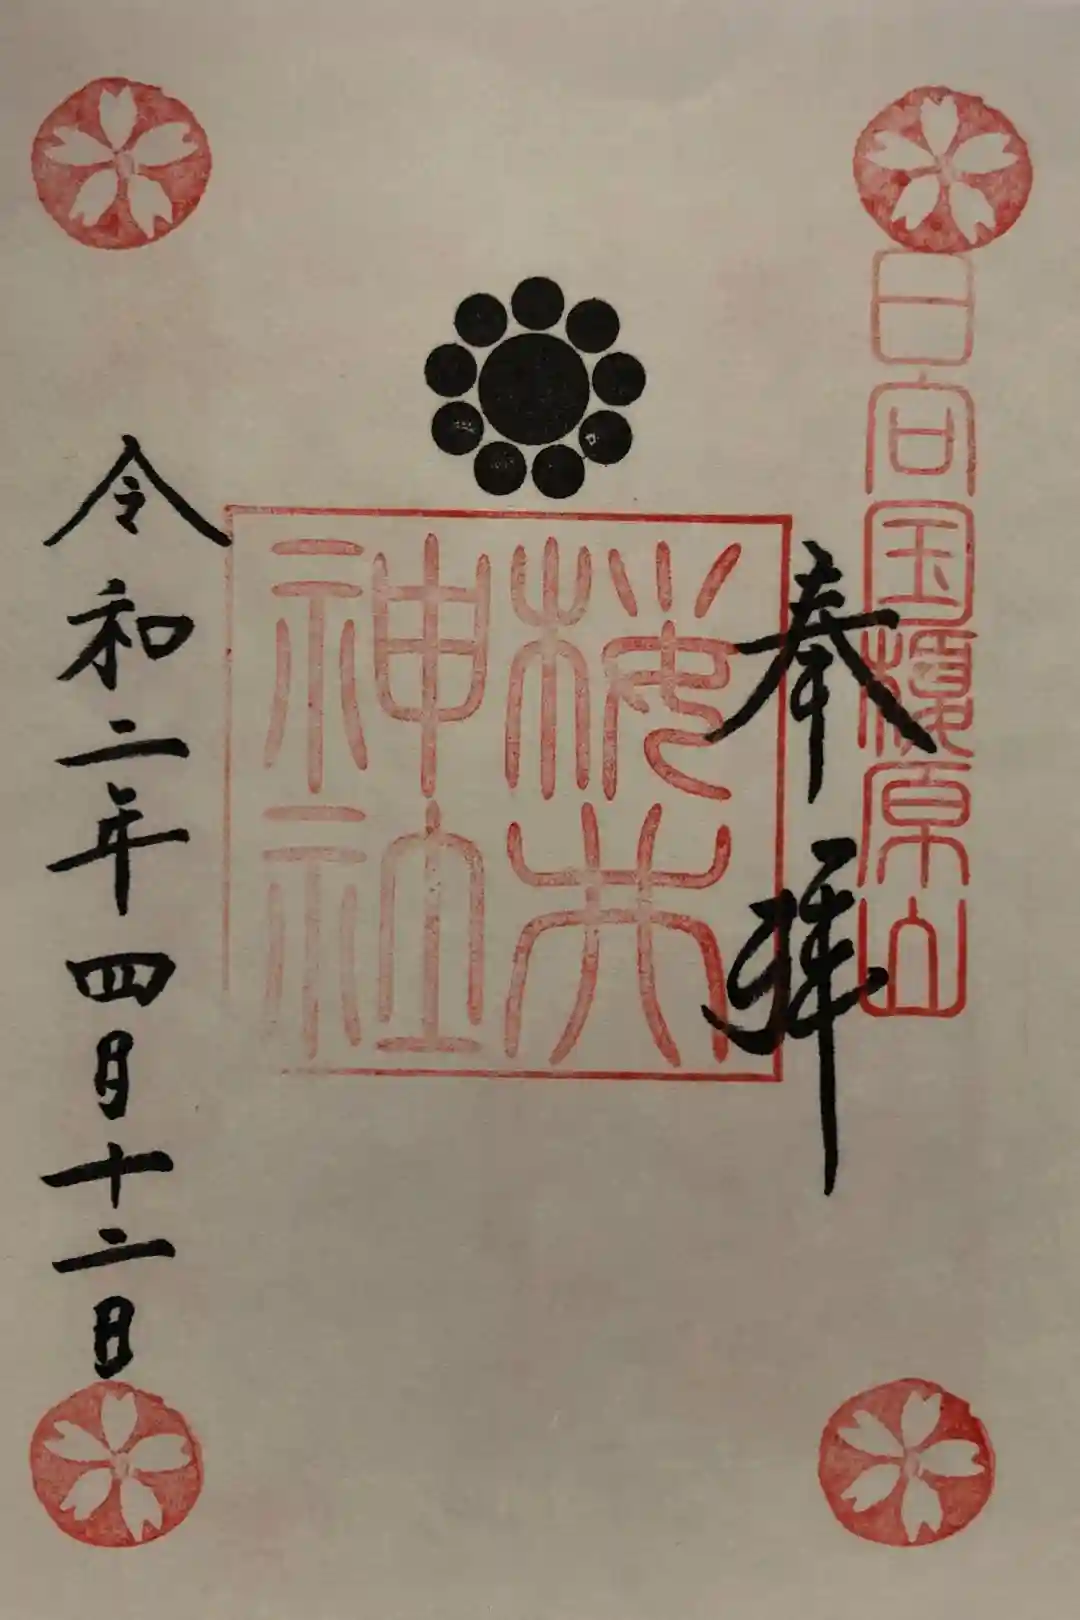 日向国櫻原山
奉拝
桜井
神社
令和二年四月十二日